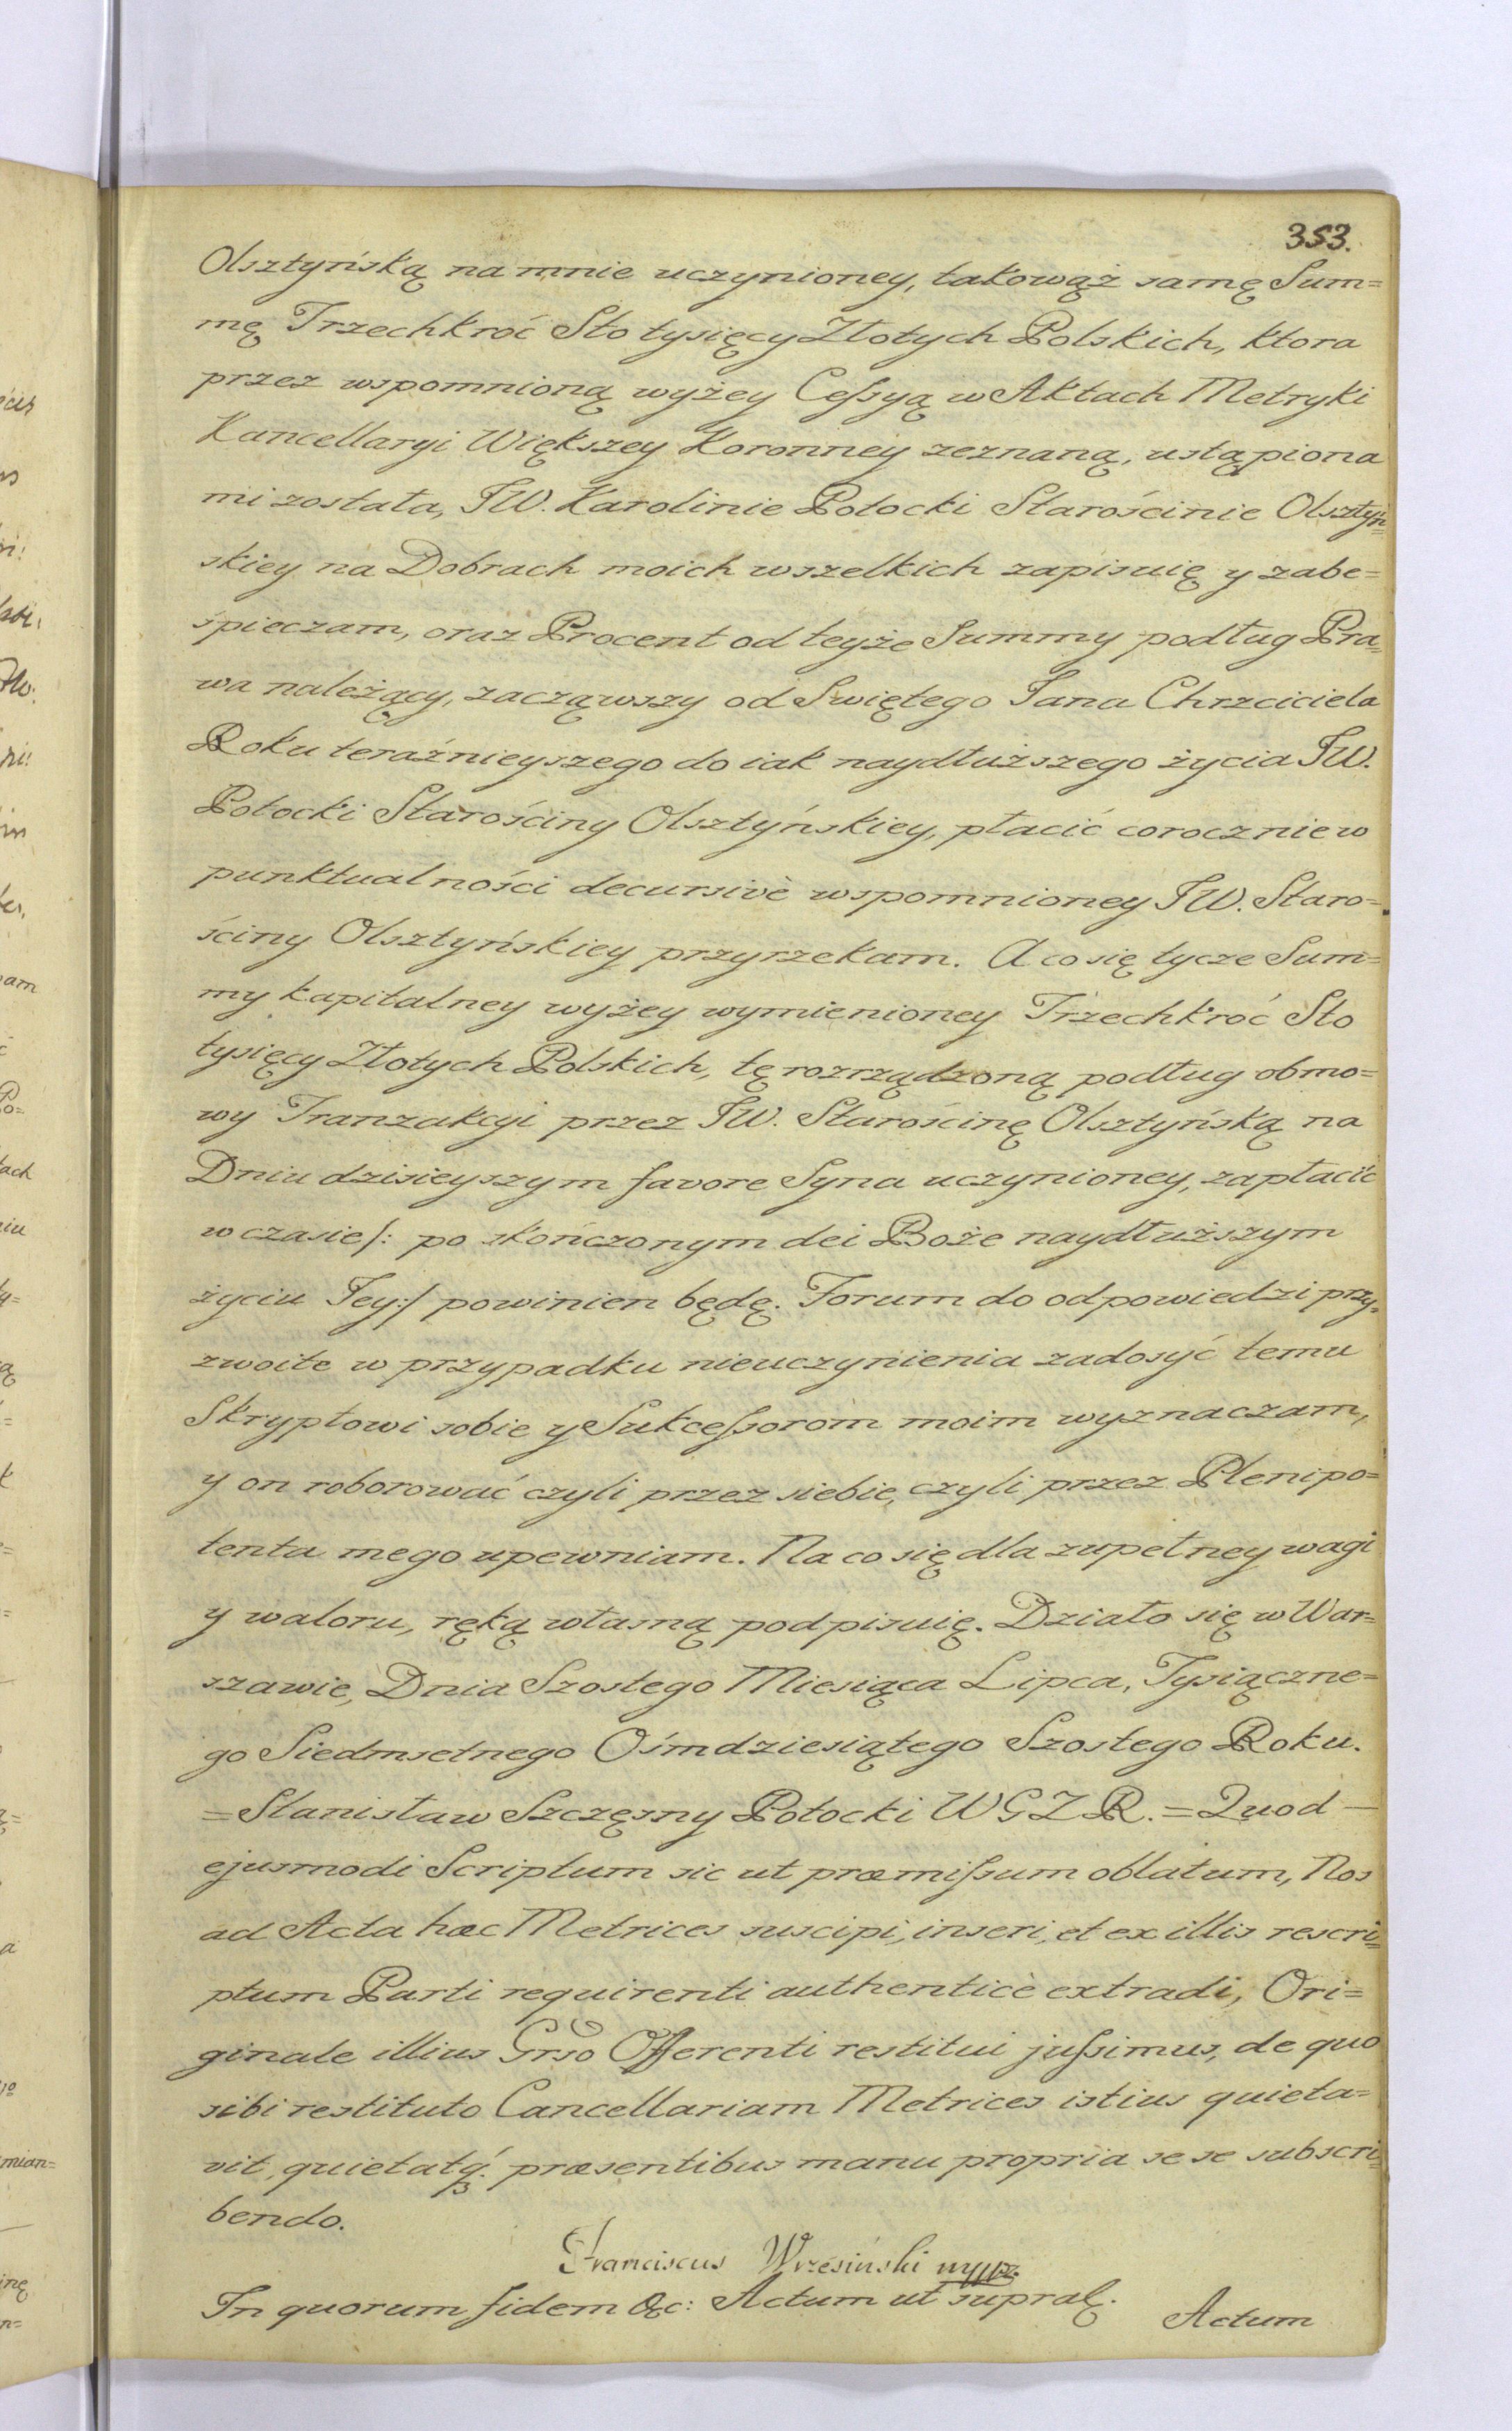 353.
Olsztyńską na mnie uczynioney, takowąż samę Sum=
mę Trzechkroć Sto tysięcy Złotych Polskich, ktora
przez wspomnioną wyżey Cessyą w Aktach Metryki
Kancellaryi Większey Koronney zeznaną, ustąpiona
mi została, JW. Karolinie Potocki Starościnie Olsztyń=
skiey na Dobrach moich wszelkich zapisuię y zabe=
śpieczam, oraz Procent od teyże Summy podług Pra=
wa należący, zacząwszy od Swiętego Jana Chrzciciela
Roku teraźnieyszego do iak naydłuższego życia JW.
Potocki Starościny Olsztyńskiey, płacić corocznie w
punktualności decursivè wspomnioney JW. Staro=
ściny Olsztyńskiey przyrzekam. A co się tycze Sum=
my kapitalney wyżey wymienioney Trzechkroć Sto
tysięcy Złotych Polskich, tę rozrządzoną podług obmo=
wy Tranzakcyi przez JW. Starościnę Olsztyńską na
Dniu dzisieyszym favore Syna uczynioney, zapłacić
w czasie /: po skończonym dei Boże naydłuższym
życiu Jey :/ powinien będę. Forum do odpowiedzi przy=
zwoite w przypadku nieuczynienia zadosyć temu
Skryptowi sobie y Sukcessorom moim wyznaczam,
y on roborować czyli przez siebie, czyli przez Plenipo=
tenta mego upewniam. Na co się dla zupełney wagi
y waloru, ręką własną podpisuię. Działo się w War=
szawie, Dnia Szostego Miesiąca Lipca, Tysiączne=
go Siedmsetnego Ośmdziesiątego Szostego Roku.
= Stanisław Szczęsny Potocki W G Z R. = Quod —
ejusmodi Scriptum sic ut præmissum oblatum, Nos
ad Acta hæc Metrices suscipi, inseri, et ex illis rescri=
ptum Parti requirenti authenticè extradi, Ori=
ginale illius Grso Offerenti restitui jussimus, de quo
sibi restituto Cancellariam Metrices istius quieta=
vit, quietatq́₃. præsentibus manu propria se se subscri=
bendo.
Franciscus Wrzesiński mppr.
In quorum fidem &c: Actum ut supra.
Actum